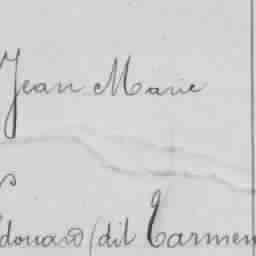 Jean Marie
s
douard (dit Carmen